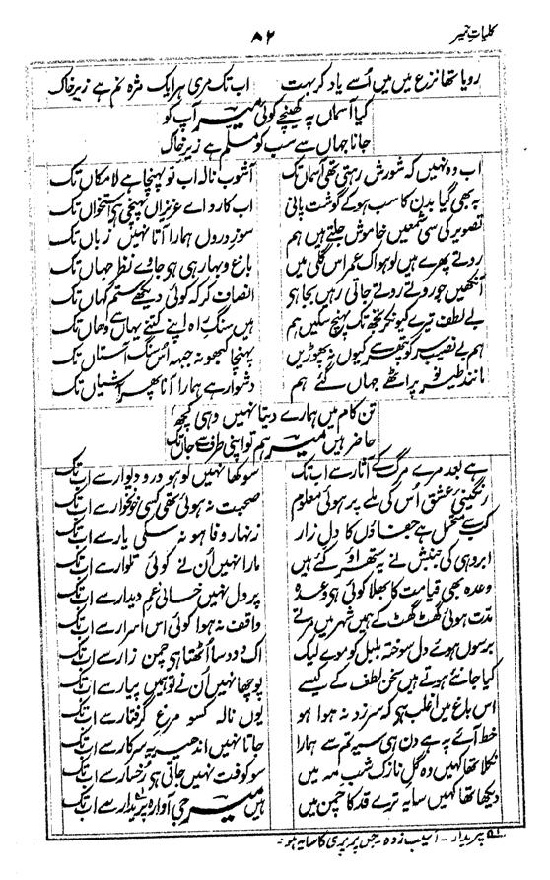 کلیاتِ میر
۸۲
رویا تھا نزع میں میں اُسے یاد کر بہت اب تک مری ہر ایک مژہ نم ہے زیرِ خاک
کیا آسماں پہ کھینچے کوئی میر آپ کو
جانا جہاں سے سب کو مسلم ہے زیرِ خاک
اب وہ نہیں کہ شورش رہتی تھی آسماں تک آشوبِ نالہ اب تو پہنچا ہے لامکاں تک
بہ بھی گیا بدن کا سب ہو کے گوشت پانی اب کارد اے عزیزاں پہنچی ہے استخواں تک
تصویر کی سی شمعیں خاموش جلتے ہیں ہم سوزِ دروں ہمارا آتا نہیں زباں تک
روتے پھرے ہیں لوہو اک عمر اس گلی میں باغ و بہار ہی ہو جاوے نظر جہاں تک
آنکھیں جو روتے روتے جاتی رہیں بجا ہو انصاف کر کہ کوئی دیکھے ستم کہاں تک
بے لطف تیرے کیونکر تجھ تک پہنچ سکیں ہم ہیں سنگِ راہ اپنے کتنے یہاں سے وھاں تک
ہم بے نصیب سر کو پتھر سے کیوں نہ پھوڑیں پہنچا کبھو نہ جبہہ اُس سنگِ آستاں تک
مانند طیرِ نو پر اٹھے جہاں گئے ہم دشوار ہے ہمارا آنا پھر آشیاں تک
تن کام میں ہمارے دیتا نہیں وہی کچھ
حاضر ہیں میر ہم تو اپنی طرف سے جاں تک
ہے بعد مرے مرگ کے آثار سے اب تک سوکھا نہیں لوہو در و دیوار سے اب تک
رنگینیِ عشق اُس کی ملے پر ہوئی معلوم صحبت نہ ہوئی تھی کسی خونخوار سے اب تک
کب سے متحمل ہے جفاؤں کا دلِ زار زنہار وفا ہو نہ سکی یار سے اب تک
ابرو ہی کی جنبش نے یہ ستھراؤ کئے ہیں مارا نہیں اُن نے کوئی تلوار سے اب تک
وعدہ بھی قیامت کا بھلا کوئی ہے وعدہ پر دل نہیں خالی غمِ دیدار سے اب تک
مدّت ہوئی گھٹ گھٹ کے ہمیں شہر میں مرتے واقف نہ ہوا کوئی اس اسرار سے اب تک
برسوں ہوے دل سوختہ بلبل کو موے لیک اک دود سا اٹھتا ہے چمن زار سے اب تک
کیا جانئے ہوتے ہیں سخن لطف کے کیسے پوچھا نہیں اُن نے تو ہمیں پیار سے اب تک
اس باغ میں اغلب ہے کہ سرزد نہ ہوا ہو یوں نالہ کسو مرغِ گرفتار سے اب تک
خط آئے پہ ہے دن ہی سیہ تم سے ہمارا جاتا نہیں اندھیر یہ سرکار سے اب تک
نکلا تھا کہیں وہ گلِ نازک شبِ مہ میں سو کوفت نہیں جاتی ہے رخسار سے اب تک
دیکھا تھا کہیں سایہ ترے قد کا چمن میں ہیں میر جی آوارہ پریدار سے اب تک
پریدار۔ آسیب زدہ۔ جس پر پری کا سایہ ہو۔